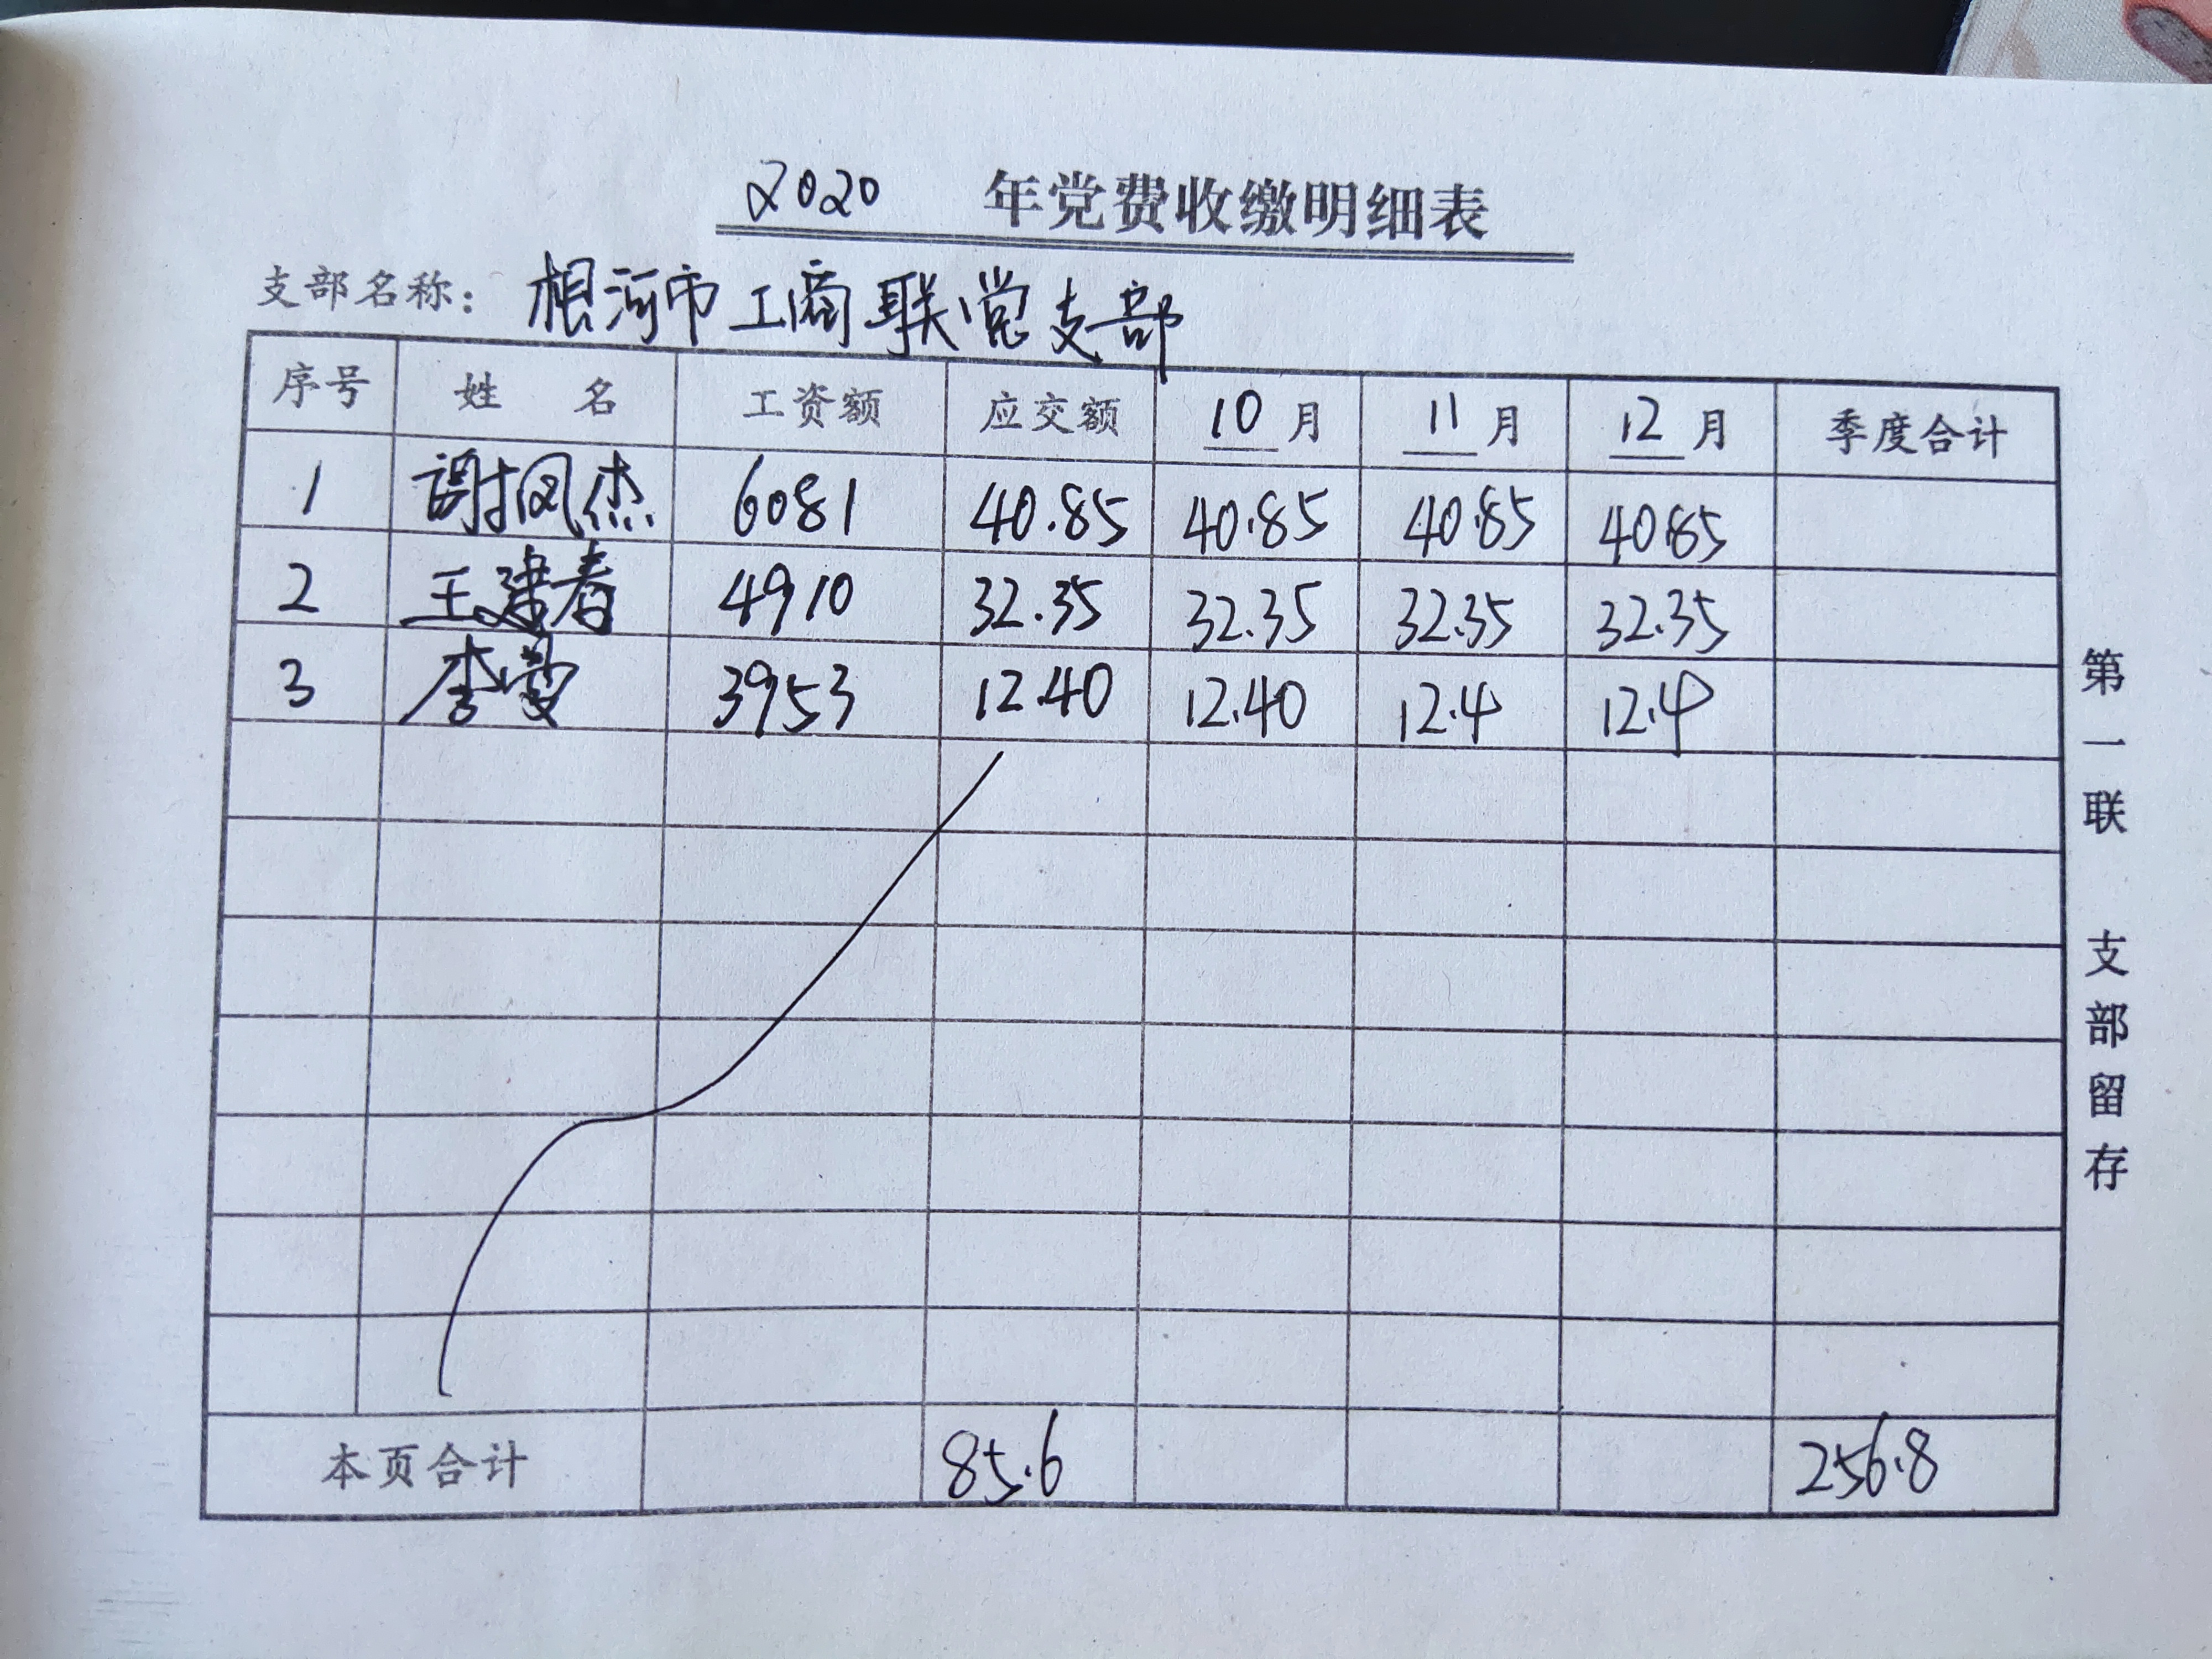 2020 年党费收缴明细表
支部名称：根河市工商联党支部
序号 姓名 工资额 应交额 10月 11月 12月 季度合计
1 谢凤杰 6081 40.85 40.85 40.85 40.85
2 王建春 4910 32.35 32.35 32.35 32.35
3 李莹 3953 12.40 12.40 12.4 12.4
本页合计 85.6 256.8
第一联 支部留存